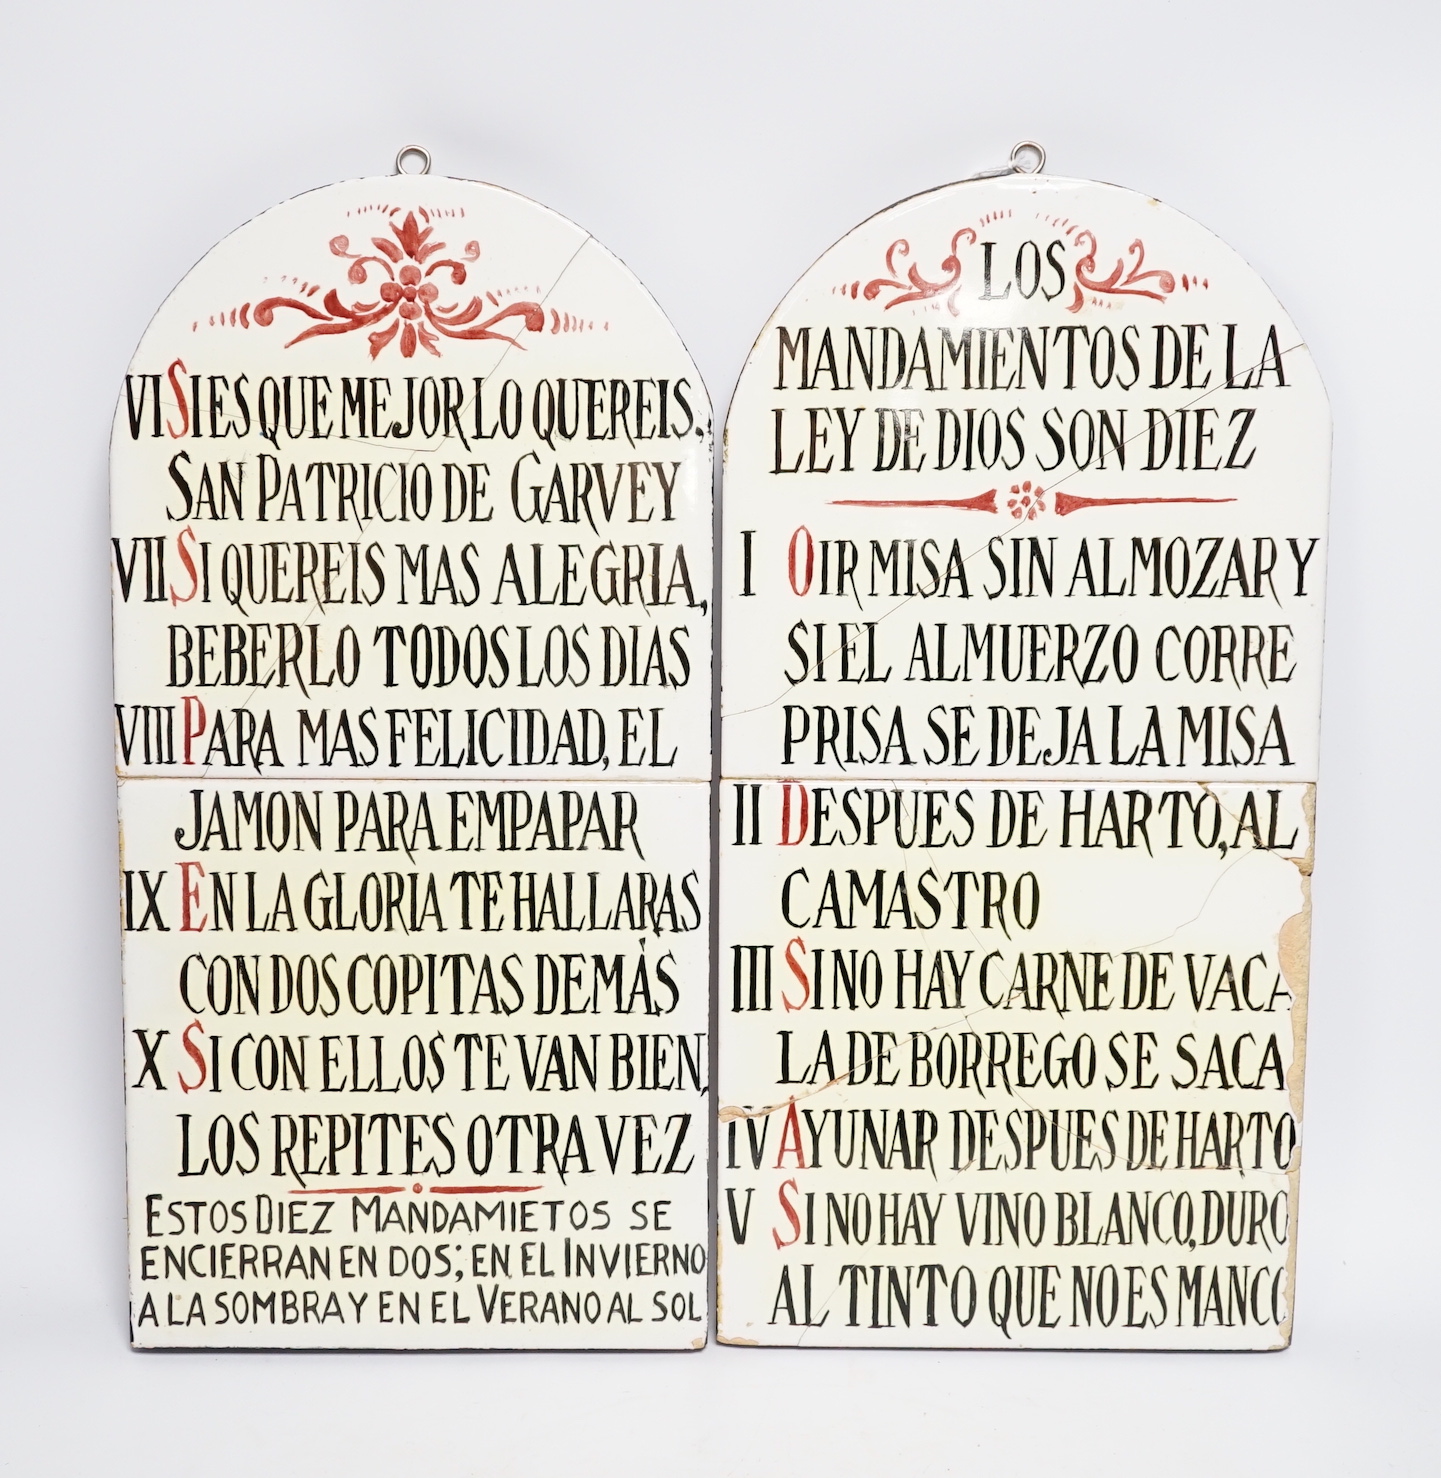 VI SI ES QUE MEJOR LO QUEREIS,
SAN PATRICIO DE GARVEY
VII SI QUEREIS MAS ALEGRIA,
BEBERLO TODOS LOS DIAS
VIII PARA MAS FELICIDAD, EL
JAMON PARA EMPAPAR
IX EN LA GLORIA TE HALLARAS
CON DOS COPITAS DE MÁS
X SI CON ELLOS TE VAN BIEN,
LOS REPITES OTRA VEZ
ESTOS DIEZ MANDAMIETOS SE
ENCIERRAN EN DOS; EN EL INVIERNO
A LA SOMBRA Y EN EL VERANO AL SOL
LOS
MANDAMIENTOS DE LA
LEY DE DIOS SON DIEZ
I OIR MISA SIN ALMOZAR Y
SI EL ALMUERZO CORRE
PRISA SE DEJA LA MISA
II DESPUES DE HARTO, AL
CAMASTRO
III SI NO HAY CARNE DE VACA
LA DE BORREGO SE SACA
IV AYUNAR DESPUES DE HARTO
V SI NO HAY VINO BLANCO, DURO
AL TINTO QUE NO ES MANCO